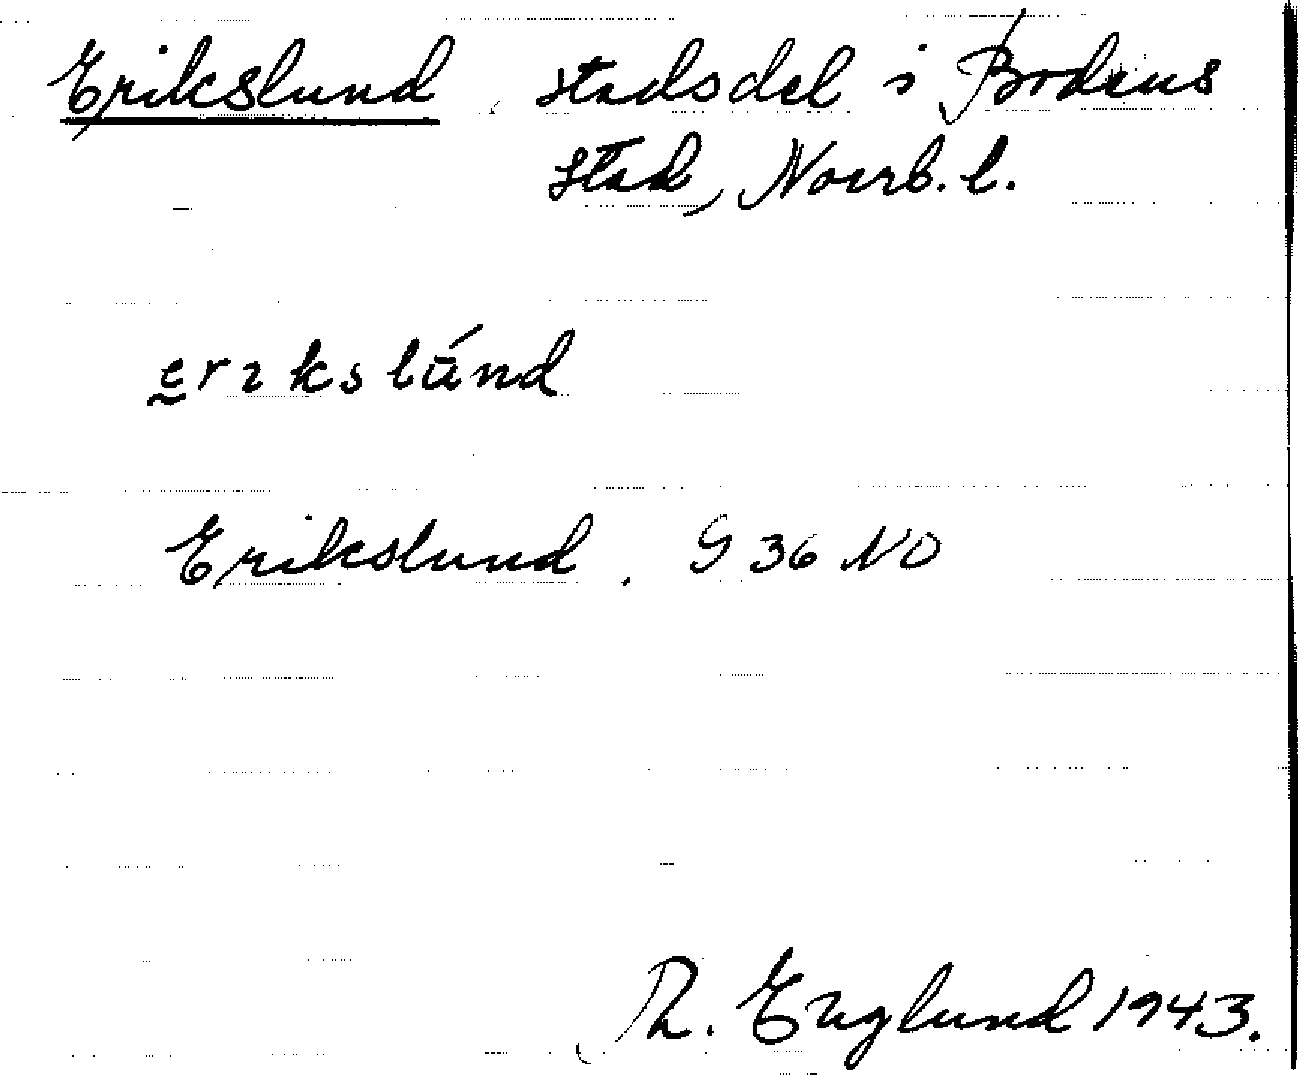 Erikslund, stadsdel i Bodens
stad, Norrb. l.
erɩkslū́nd
Erikslund. G 36 NO
R. Englund 1943.